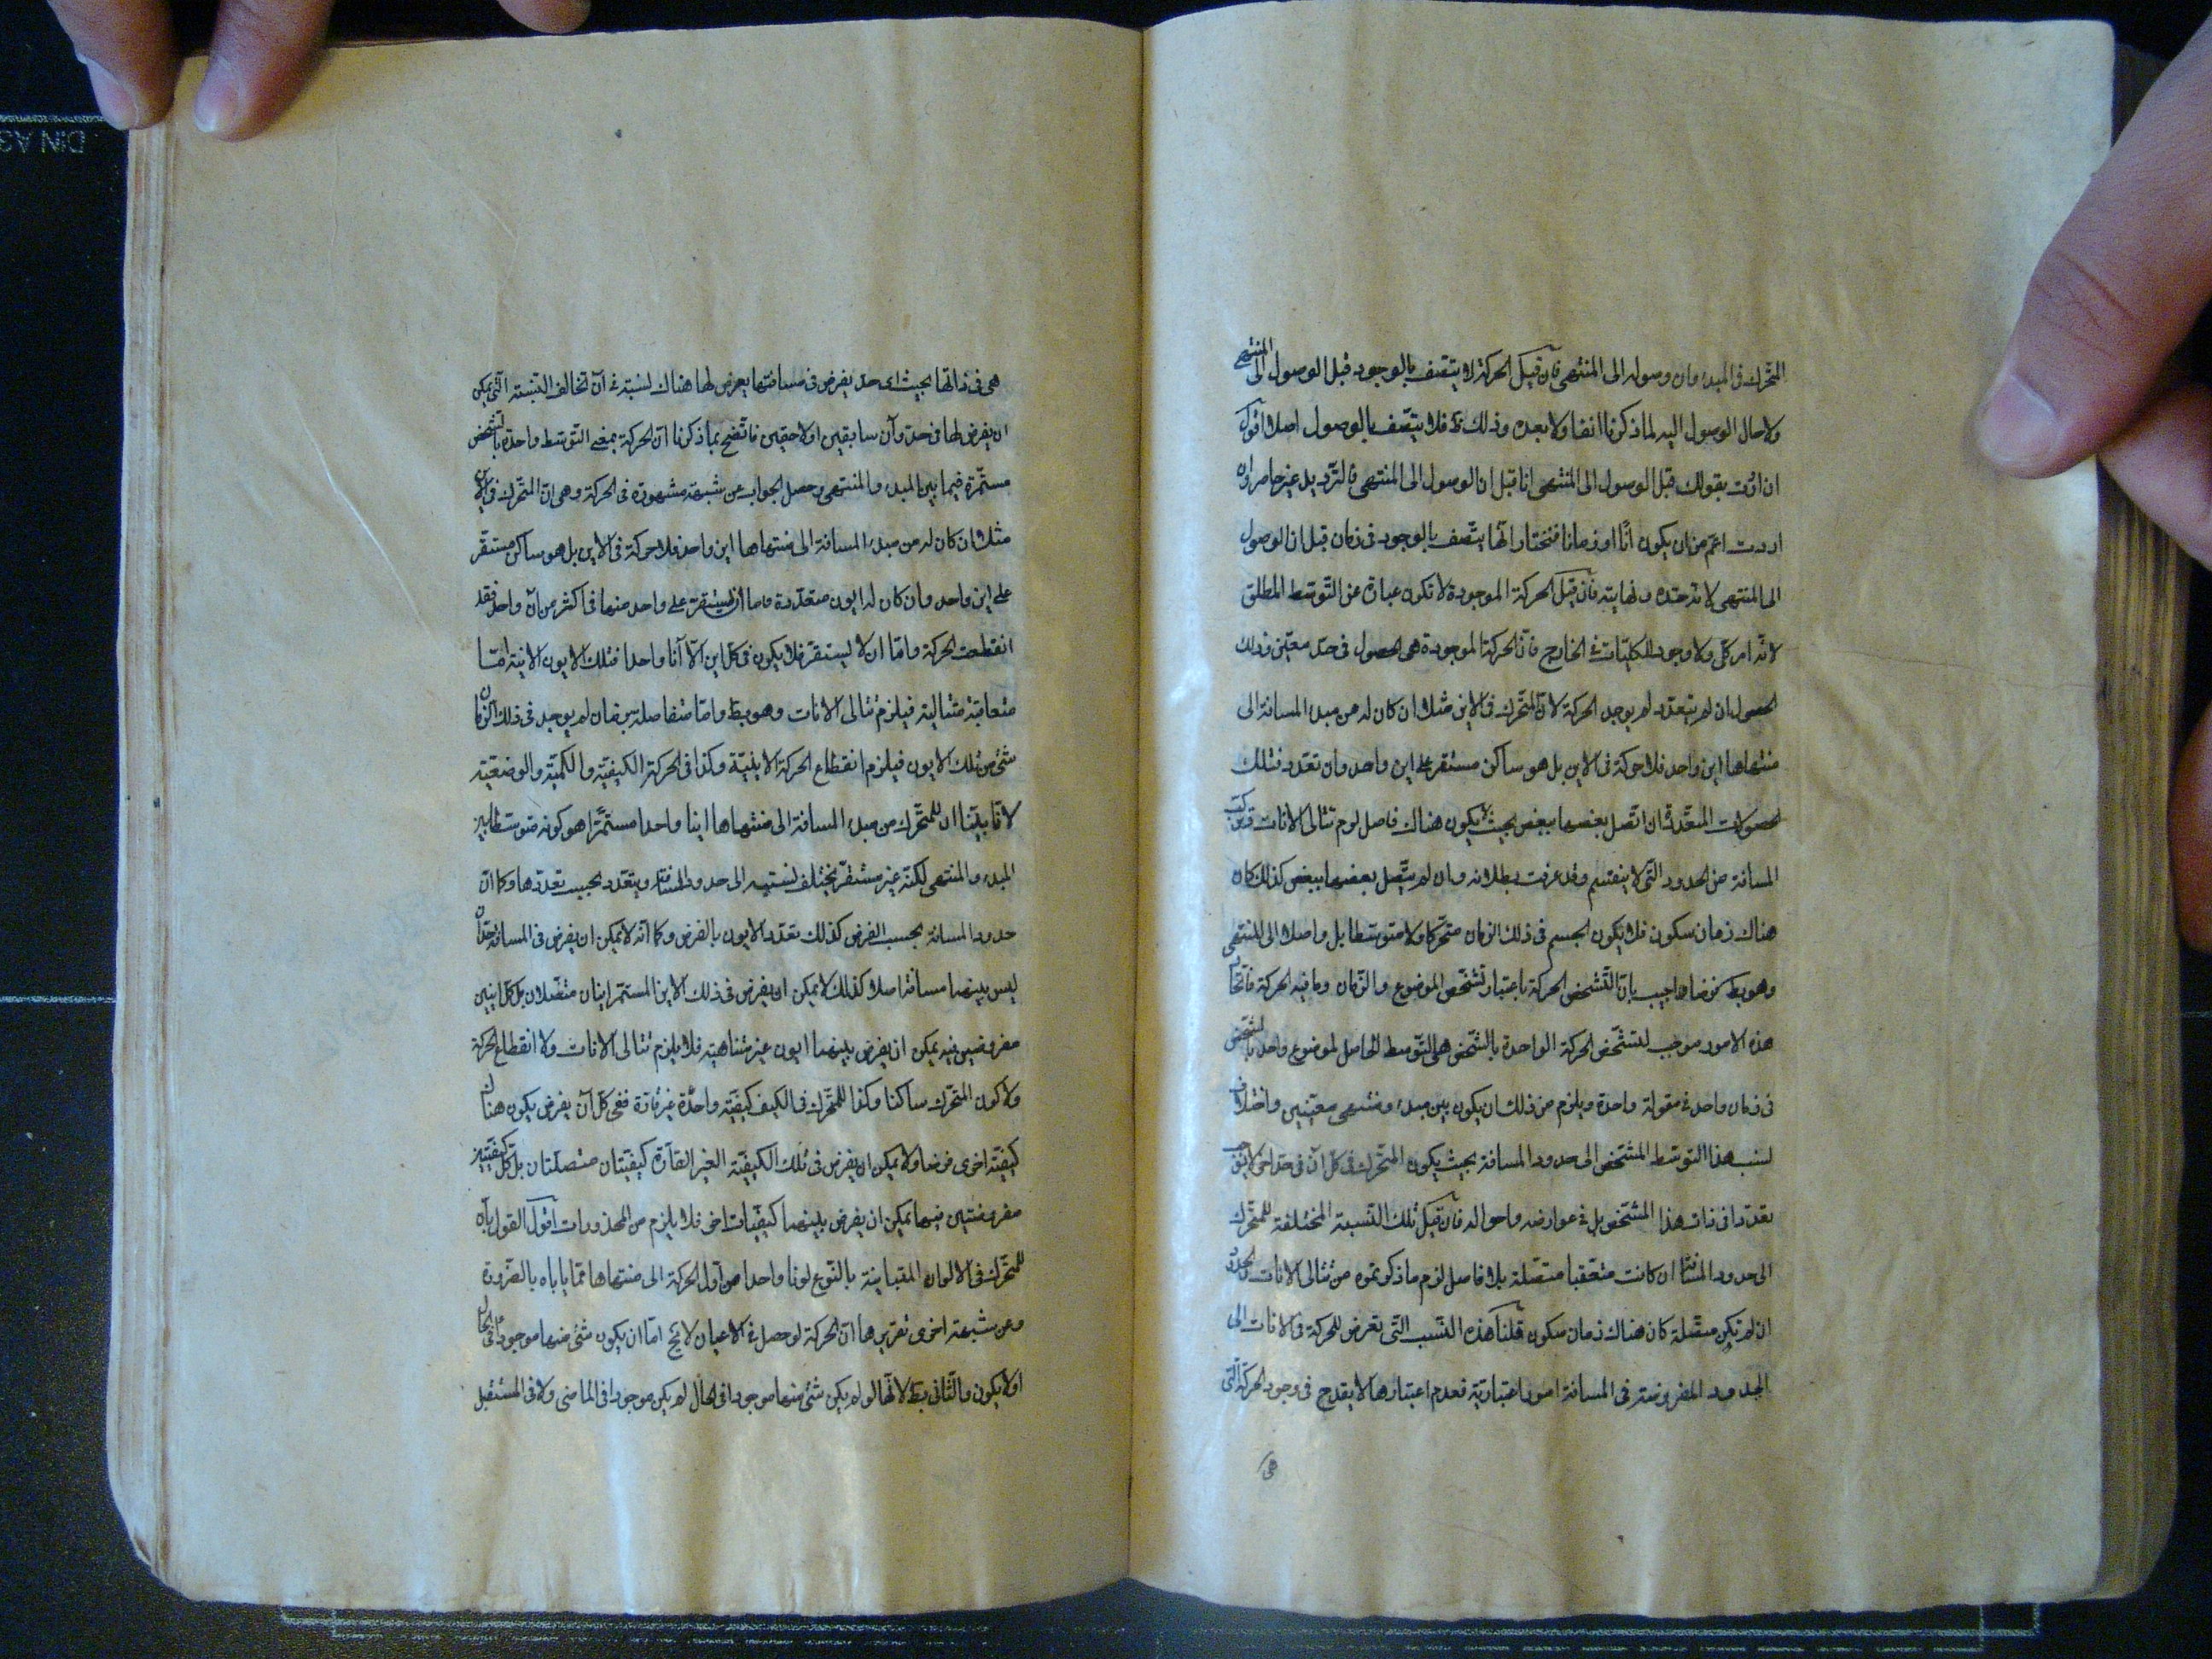 المتحرك فى المبدء وان وصوله الى المنتهى فان قيل الحركة لا يتصف بالوجود قبل الوصول الى المنتهى
ولا حال الوصول اليه لما ذكرنا انفا ولا بعده وذلك ظ فلا يتصف بالوصول اصلا اقول
ان اردت بقولك قبل الوصول الى المنتهى انا قبل ان الوصول الى المنتهى فالترديد غير حاصر وان
اردت اعم من ان يكون انًا او زمانا فنختار انها يتصف بالوجود فى زمان قبل ان الوصول
الى المنتهى لانه حده ونهايته فان قيل الحركة الموجودة لا تكون عبارة عن التوسط المطلق
لانه امر كلى ولا وجود للكليات فى الخارج فان الحركة الموجودة هى الحصول فى حد معين وذلك
الحصول ان لم يتعدد لم يوجد الحركة لان المتحرك فى الاين مثلا ان كان له من مبدء المسافة الى
منتهاها اين واحد فلا حركة فى الاين بل هو ساكن مستقر على اين واحد وان تعدد فتلك
الحصولات المتعددة ان اتصل بعضها ببعض بحيث لا يكون هناك فاصل لزم تتالى الانات وتركب
المسافة من الحدود التى لا ينقسم وقد عرفت بطلانه وان لم يتصل بعضها ببعض كذلك كان
هناك زمان سكون فلا يكون الجسم فى ذلك الزمان متحركا ولا متوسطا بل واصلا الى المنتهى
وهو بط فرضا اجيب بان التشخص الحركة باعتبار تشخص الموضوع والزمان وما فيه الحركة فاتحاد
هذه الامور موجب لتشخص الحركة الواحدة بالشخص هى التوسط الحاصل لموضوع واحد بالشخص
فى زمان واحد فى مقولة واحدة ويلزم من ذلك ان يكون بين مبدء ومنتهى معينين واختلاف
نسب هذا التوسط المشخص الى حدود المسافة بحيث يكون المتحرك فى كل ان فى حد اخر لا يوجب
تعددا فى ذات هذا المشخص بل فى عوارضه واحواله فان قيل تلك النسبة المختلفة للمتحرك
الى حدود المسافة ان كانت متعقبا متصلة بلا فاصل لزم ما ذكرتموه من تتالى الانات والحدود
ان لم تكن متصلة كان هناك زمان سكون قلنا هذه النسب التى تعرض للحركة فى الانات الى
الحدود المفروضة فى المسافة امور اعتبارية فعدم اعتبارها لا يقدح فى وجود الحركة التى
هى
هى فى ذاتها بحيث اى حد يفرض فى مسافتها يعرض لها هناك نسبة فى آن تخالف النسبة التى يمكن
ان يفرض لها فى حد وآن سابقين او لاحقين فاتضح بما ذكرنا ان الحركة بمعنى التوسط واحدة بالشخص
مستمرة فيما بين المبدء والمنتهى وحصل الجواب عن شبهة مشهورة فى الحركة وهى ان المتحرك فى الاين
مثلا ان كان له من مبدء المسافة الى منتهاها اين واحد فلا حركة فى الاين بل هو ساكن مستقر
على اين واحد وان كان له ايون متعددة فاما ان يستقر على واحد منها فى اكثر من ان واحد فقد
انقطعت الحركة واما ان لا يستقر فلا يكون فى كل اين الا آنا واحدا فتلك الايون الانية اما
متعاقبة متتالية فيلزم تتالى الانات وهو بط واما متفاصلة بزمان لم يوجد فى ذلك الزمان
شئ من تلك الايون فيلزم انقطاع الحركة الاينية وكذا فى الحركة الكيفية والكمية والوضعية
لانا بينا ان للمتحرك من مبدء المسافة الى منتهاها اينا واحدا مستمرًا هو كونه متوسطا بين
المبدء والمنتهى لكنه غير مستقر يختلف نسبته الى حدود المسافة ويتعدد بحسب تعددها وكما ان
حدود المسافة بحسب الفرض كذلك تعدد الايون بالفرض وكما انه لا يمكن ان يفرض فى المسافة حدان
ليس بينهما مسافة اصلا كذلك لا يمكن ان يفرض فى ذلك الاين المستمر اينان متصلان بل كل اينين
مفروضين فيه يمكن ان يفرض بينهما ايون غير متناهية فلا يلزم تتالى الانات ولا انقطاع الحركة
ولا كون المتحرك ساكنا وكذا للمتحرك فى الكيف كيفية واحدة غير قارة ففى كل آن يفرض يكون هناك
كيفية اخرى فرضا ولا يمكن ان يفرض فى تلك الكيفية الغير القارة كيفيتان متصلتان بل كل كيفيتين
مفروضتين فيها يمكن ان يفرض بينهما كيفيات اخر فلا يلزم من المحذورات اقول القول بان
للمتحرك فى الالوان المتباينة بالنوع لونا واحدا من اول الحركة الى منتهاها مما ياباه بالضرورة
وعن شبهة اخرى تقريرها ان الحركة لو حصل فى الاعيان لا يخ اما ان يكون شئ منها موجودا فى الحال
او لا يكون والثانى بط لانها لو لم يكن شئ منها موجودا فى الحال لم يكن موجودا فى الماضى ولا فى المستقبل
DIN A3